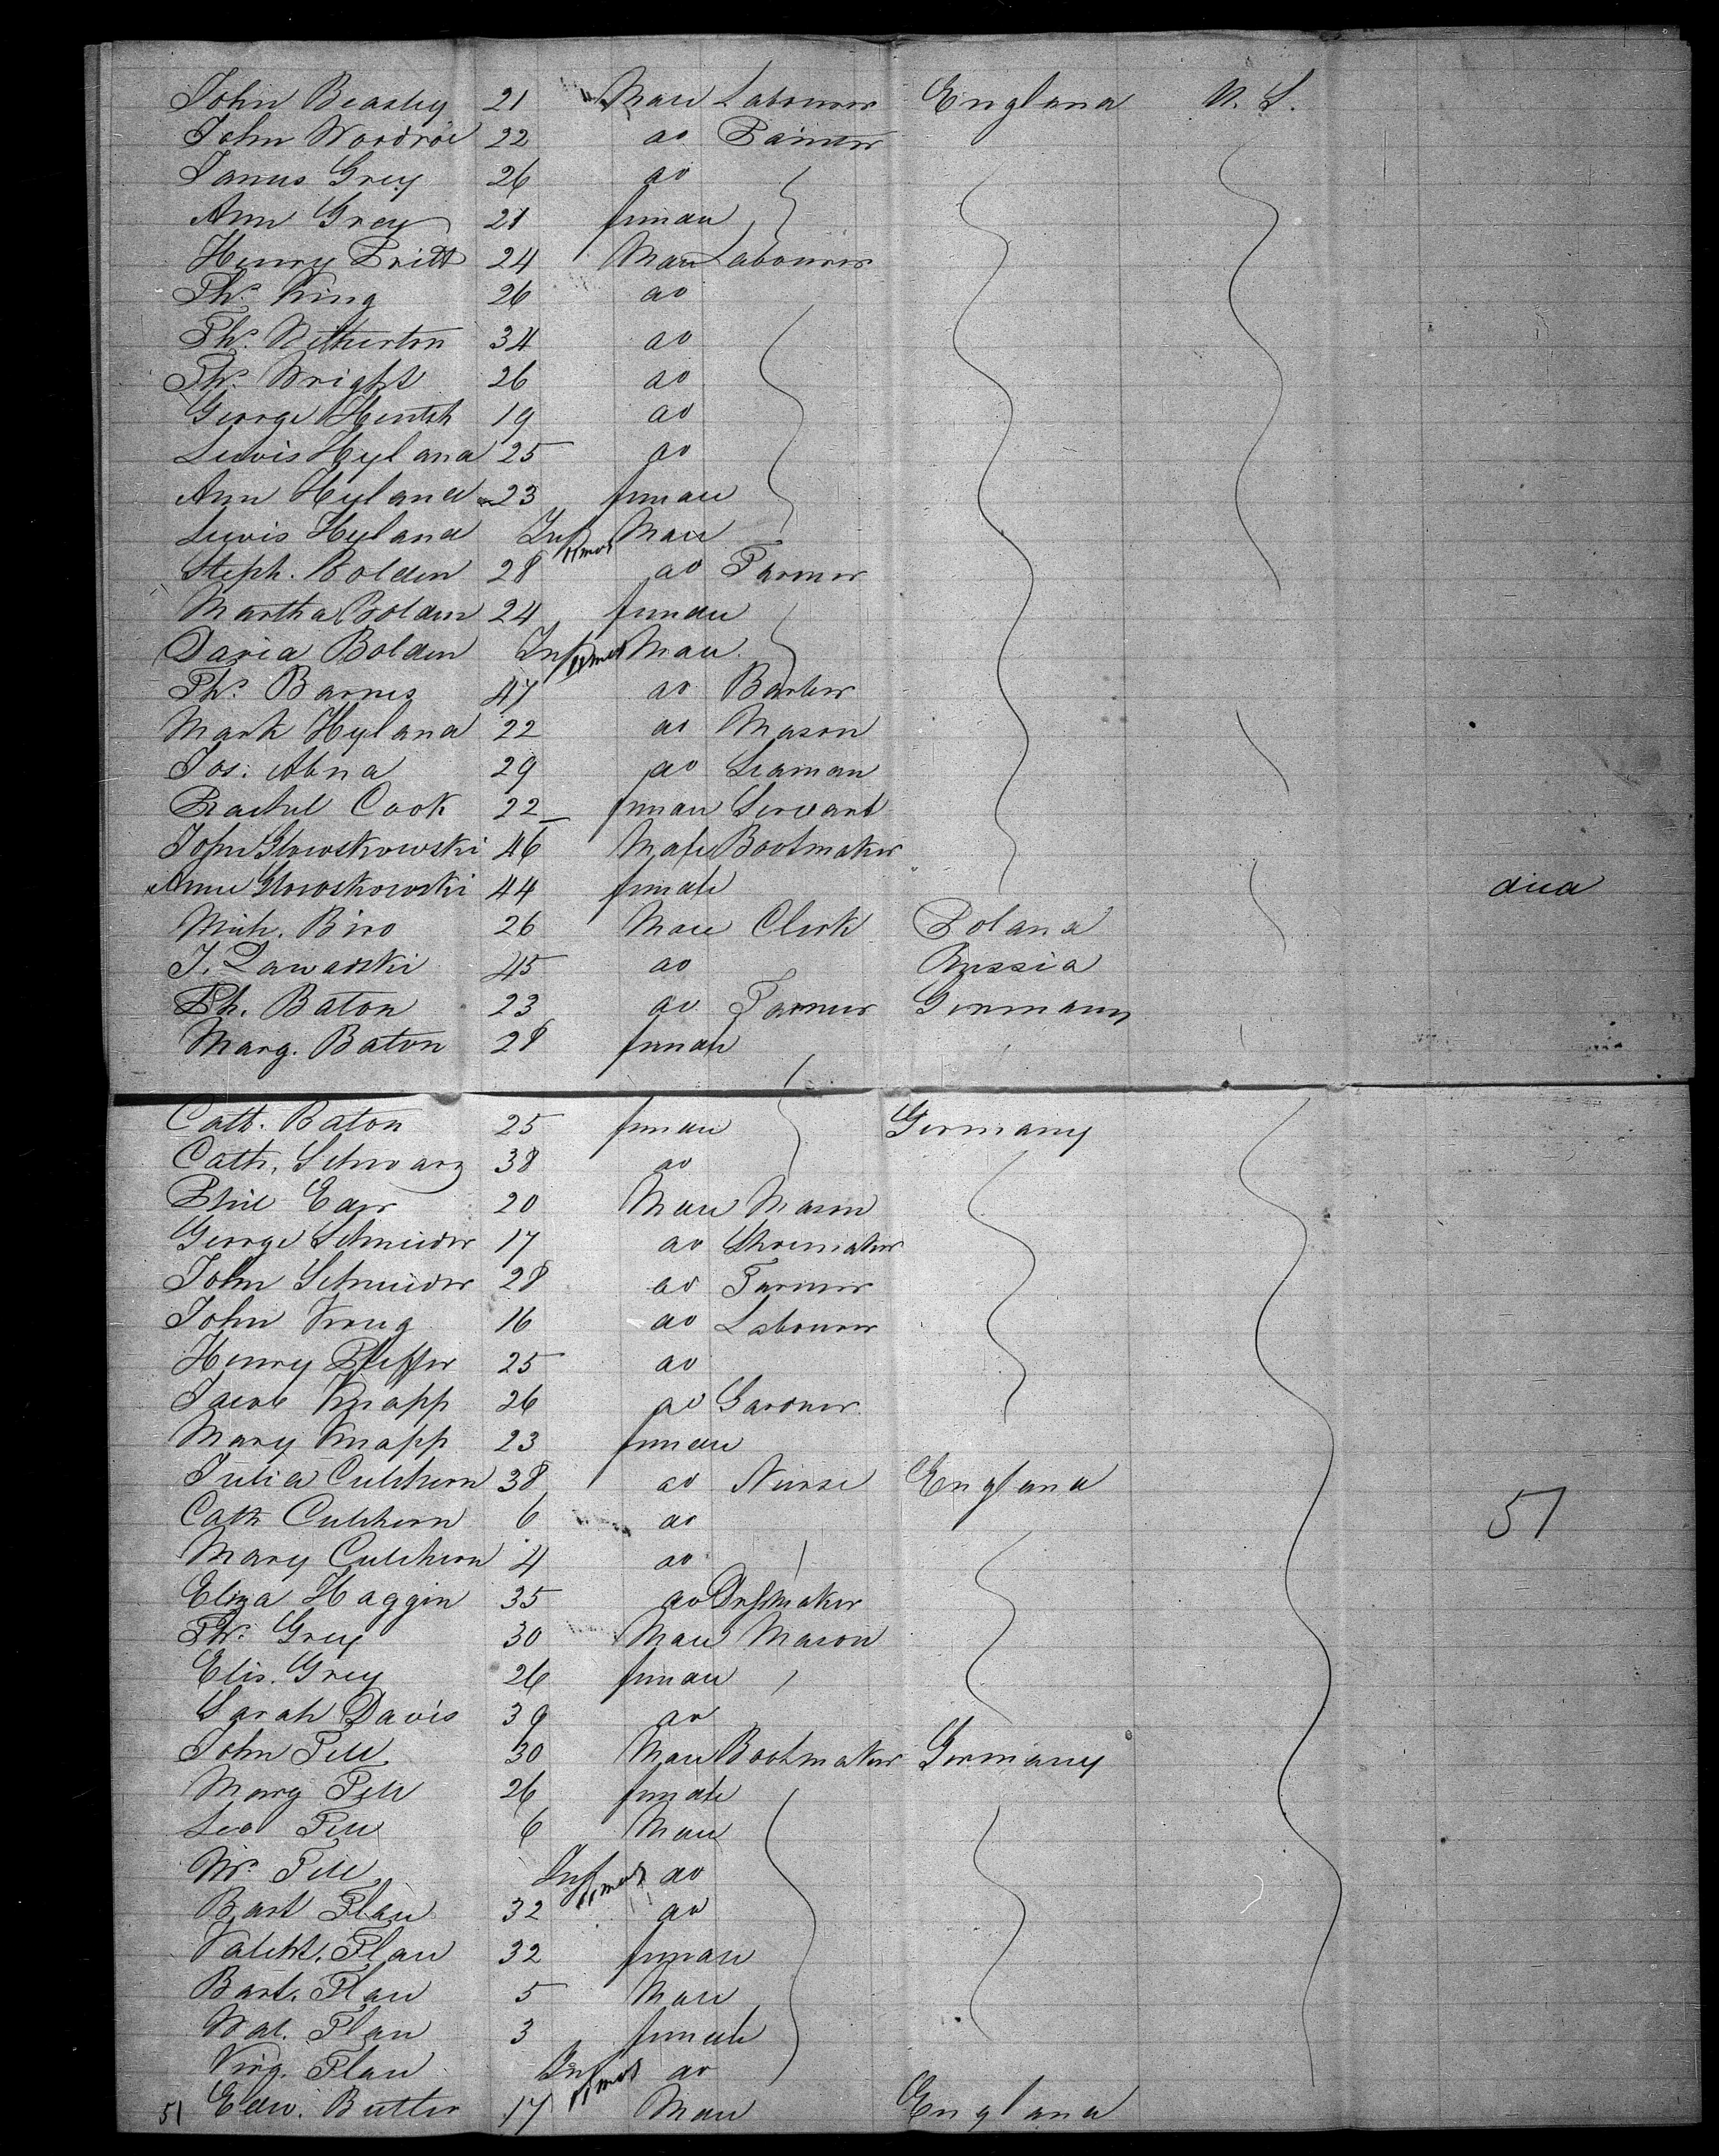 John Beasley 21 Male Labourer England U. S.
John Woodroe 22 do Painter
James Grey 26 do
Ann Grey 21 female
Henry Pritt 24 Male Labourer
Ths. King 26 do
Ths. Witherton 34 do
Ths. Wright 26 do
George Hentsh 19 do
Lewis Hyland 25 do
Ann Hyland 23 female
Lewis Hyland Inf 11 mos Male
Steph. Bolden 28 do Farmer
Martha Bolden 24 female
David Bolden Inf 11 mos Male
Ths. Barnes 47 do Barber
Mark Hyland 22 do Mason
Jos. Abna 29 do Seaman
Rachel Cook 22 female Servant
John Glowskowski 46 Male Bootmaker
Anne Glowskowski 44 female died
Mich. Biro 26 Male Clerk Poland
J. Zawadski 45 do Russia
Ph. Baton 23 do Farmer Germany
Marg. Baton 28 female
Cath. Baton 25 female Germany
Cath. Schwarz 38 do
Phil Earr 20 Male Mason
George Schneider 17 do Shoemaker
John Schneider 28 do Farmer
John Krug 16 do Labourer
Henry Pfeffer 25 do
Jacob Knapp 26 do Gardner
Mary Knapp 23 female
Julia Culihern 38 do Nurse England
Cath Culihern 6 do
Mary Culihern 4 do
Eliza Haggin 35 do Dressmaker
Ths. Grey 30 Male Mason
Elis. Grey 26 female
Sarah Davis 39 do
John Fell 30 Male Bootmaker Germany
Marg Fell 26 female
Leo Fell 6 Male
Wm. Fell Inf 11 mos do
Bart Flau 32 do
Flau 32 female
Bart. Flau 5 Male
Wal. Flau 3 female
Virg. Flau Inf 11 mos do
51 Edw. Butler 17 Male England
51